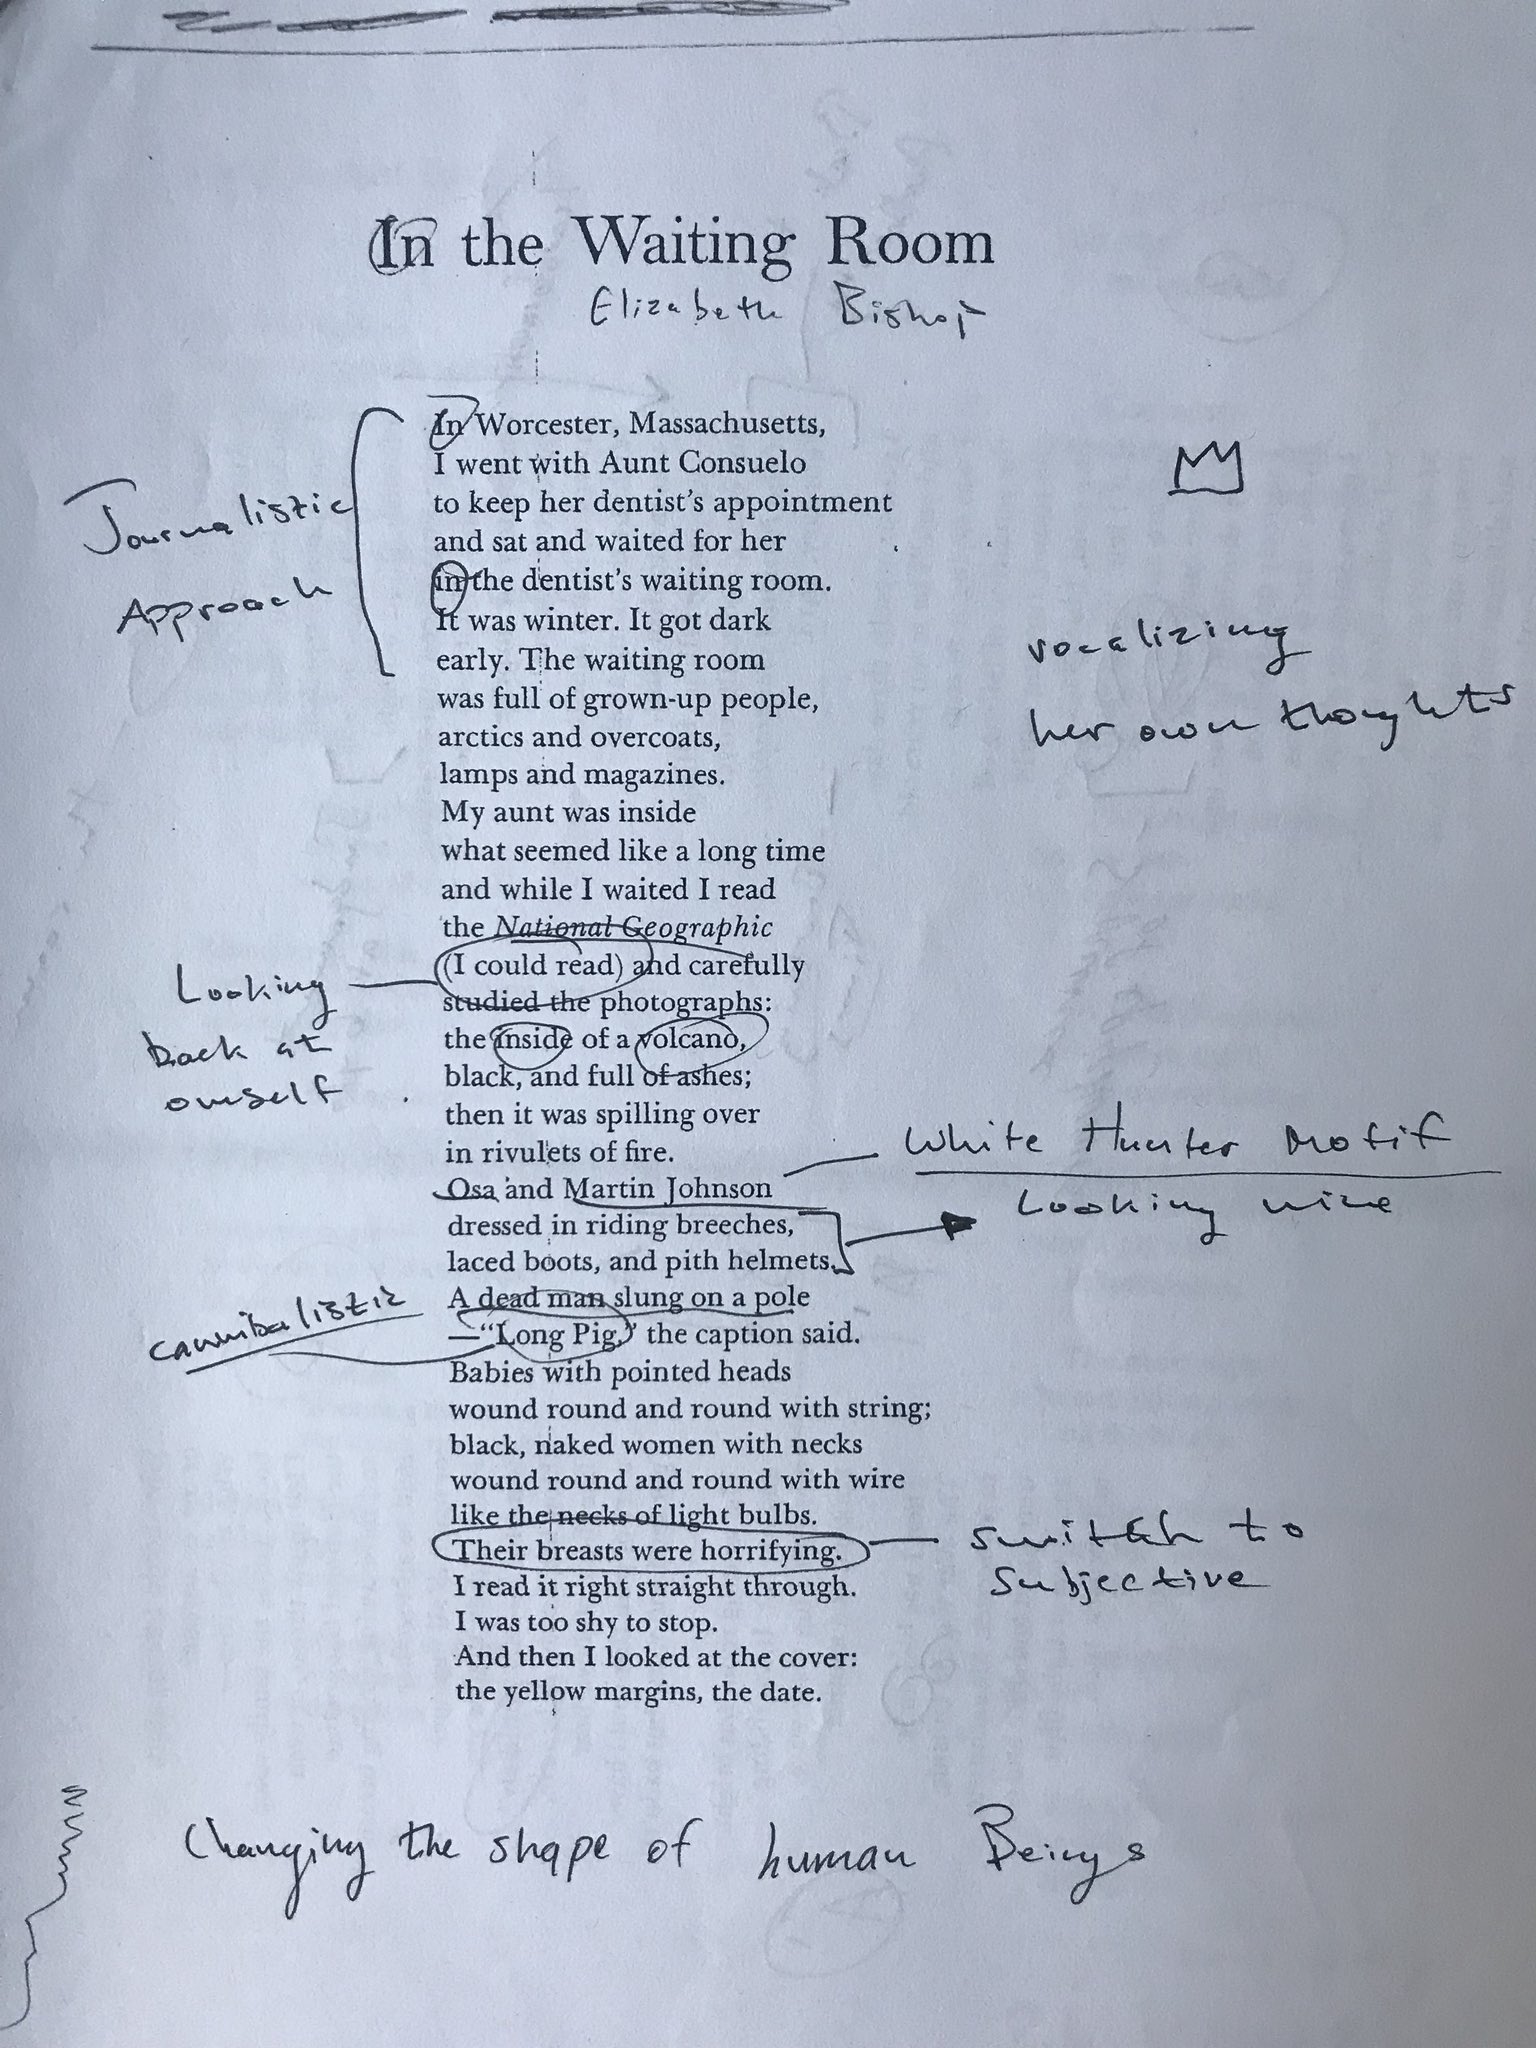 In the Waiting Room
Elizabeth Bishop
In Worcester, Massachusetts,
I went with Aunt Consuelo
to keep her dentist's appointment
and sat and waited for her
in the dentist's waiting room.
It was winter. It got dark
early. The waiting room
was full of grown-up people,
arctics and overcoats,
lamps and magazines.
My aunt was inside
what seemed like a long time
and while I waited I read
the National Geographic
(I could read) and carefully
studied the photographs:
the inside of a volcano,
black, and full of ashes;
then it was spilling over
in rivulets of fire.
Osa and Martin Johnson
dressed in riding breeches,
laced boots, and pith helmets.
A dead man slung on a pole
—"Long Pig," the caption said.
Babies with pointed heads
wound round and round with string;
black, naked women with necks
wound round and round with wire
like the necks of light bulbs.
Their breasts were horrifying.
I read it right straight through.
I was too shy to stop.
And then I looked at the cover:
the yellow margins, the date.
Journalistic
Approach
Looking
back at
ownself
cannibalistic
vocalizing
her own thoughts
White Hunter Motif
Looking
switch to
subjective
Changing the shape of human Beings